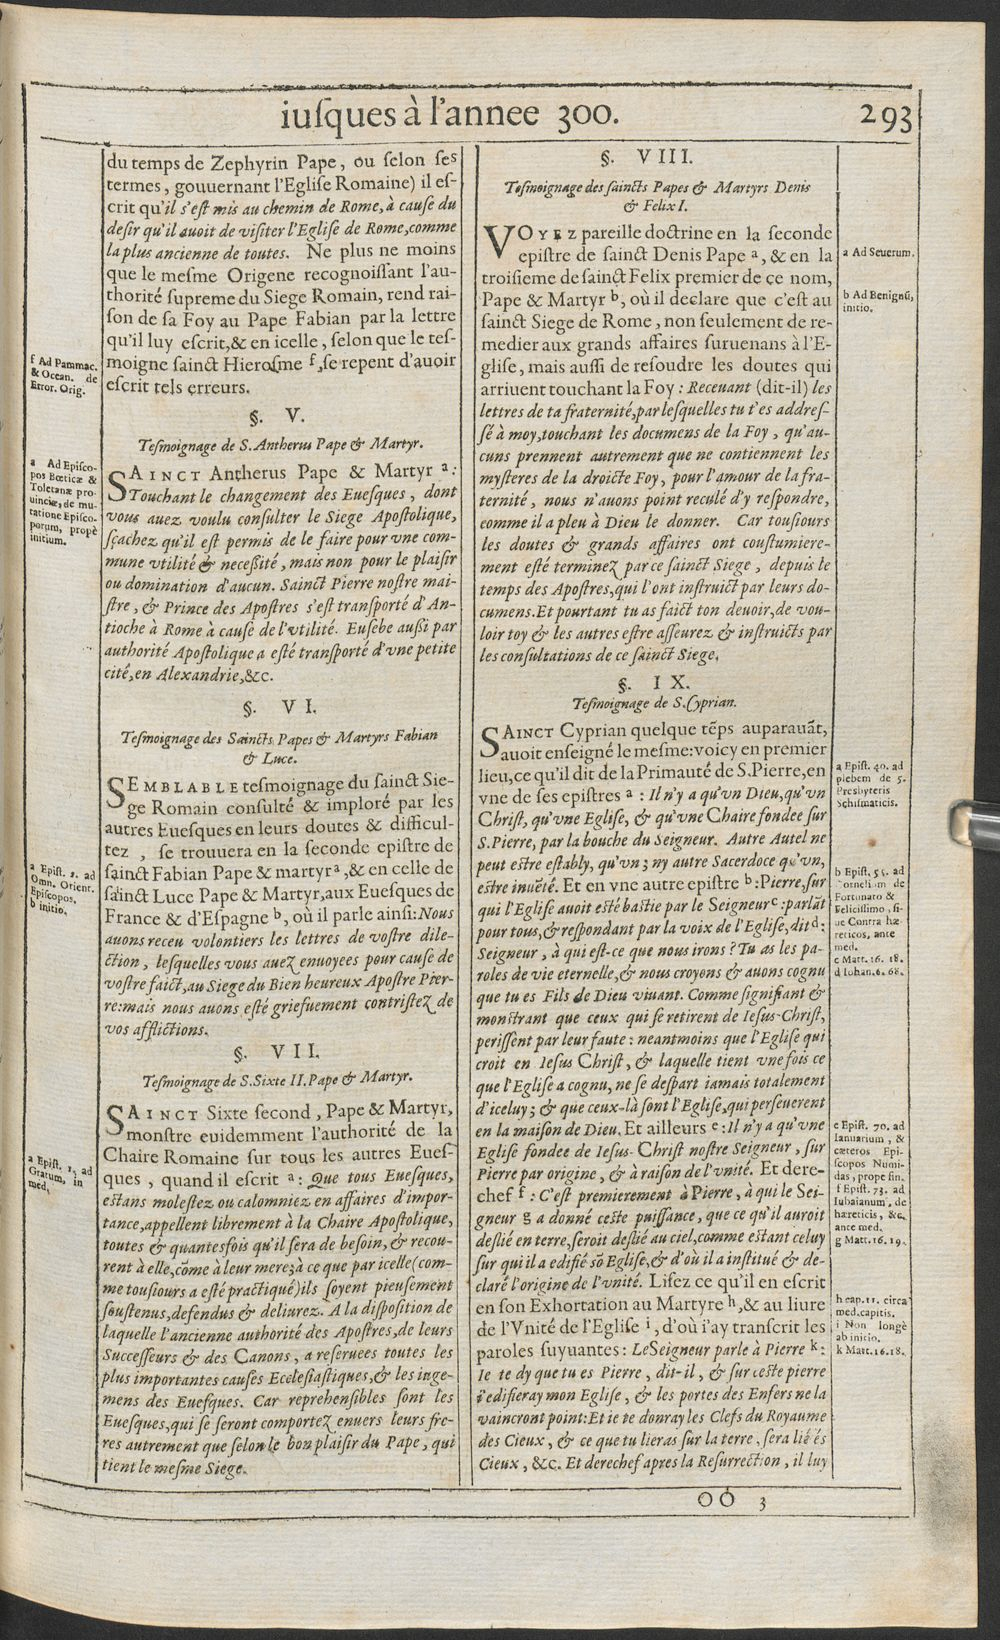 iuſques à l'annee 300.
293
du temps de Zephyrin Pape, ou ſelon ſes
termes, gouuernant l'Egliſe Romaine) il eſ-
crit qu'il s'eſt mis au chemin de Rome, à cauſe du
deſir qu'il auoit de viſiter l'Egliſe de Rome, comme
la plus ancienne de toutes. Ne plus ne moins
que le meſme Origene recognoiſſant l'au-
thorité ſupreme du Siege Romain, rend rai-
ſon de ſa Foy au Pape Fabian par la lettre
qu'il luy eſcrit, & en icelle, ſelon que le teſ-
moigne ſainct Hieroſme f, ſe repent d'auoir
eſcrit tels erreurs.
f Ad Pammac.
& Ocean. de
Error. Orig.
§. V.
Teſmoignage de S. Antherus Pape & Martyr.
SAINCT Antherus Pape & Martyr a:
Touchant le changement des Eueſques, dont
vous auez voulu conſulter le Siege Apoſtolique,
ſçachez qu'il eſt permis de le faire pour vne com-
mune vtilité & neceſſité, mais non pour le plaiſir
ou domination d'aucun. Sainct Pierre noſtre mai-
ſtre, & Prince des Apoſtres s'eſt tranſporté d'An-
tioche à Rome à cauſe de l'vtilité. Euſebe auſſi par
authorité Apoſtolique a eſté tranſporté d'vne petite
cité, en Alexandrie, &c.
a Ad Epiſco-
pos Bœticæ &
Toletanæ pro-
uinciæ, de mu-
tatione Epiſco-
porum, propè
initium.
§. VI.
Teſmoignage des Saincts Papes & Martyrs Fabian
& Luce.
SEMBLABLE teſmoignage du ſainct Sie-
ge Romain conſulté & imploré par les
autres Eueſques en leurs doutes & difficul-
tez, ſe trouuera en la ſeconde epiſtre de
ſainct Fabian Pape & martyr a, & en celle de
ſainct Luce Pape & Martyr, aux Eueſques de
France & d'Eſpagne b, où il parle ainſi: Nous
auons receu volontiers les lettres de voſtre dile-
ction, leſquelles vous auez enuoyees pour cauſe de
voſtre faict, au Siege du Bien heureux Apoſtre Pier-
re: mais nous auons eſté griefuement contriſtez de
vos afflictions.
a Epiſt. 2. ad
Omn. Orient.
Epiſcopos,
b initio.
§. VII.
Teſmoignage de S. Sixte II. Pape & Martyr.
SAINCT Sixte ſecond, Pape & Martyr,
monſtre euidemment l'authorité de la
Chaire Romaine ſur tous les autres Eueſ-
ques, quand il eſcrit a: Que tous Eueſques,
eſtans moleſtez ou calomniez en affaires d'impor-
tance, appellent librement à la Chaire Apoſtolique,
toutes & quantesfois qu'il ſera de beſoin, & recou-
rent à elle, cōme à leur mere; à ce que par icelle (com-
me touſiours a eſté practiqué) ils ſoyent pieuſement
ſouſtenus, defendus & deliurez. A la diſpoſition de
laquelle l'ancienne authorité des Apoſtres, de leurs
Succeſſeurs & des Canons, a reſeruees toutes les
plus importantes cauſes Eccleſiaſtiques, & les iuge-
mens des Eueſques. Car reprehenſibles ſont les
Eueſques, qui ſe ſeront comportez enuers leurs fre-
res autrement que ſelon le bon plaiſir du Pape, qui
tient le meſme Siege.
a Epiſt. 1. ad
Gratum, in
med.
§. VIII.
Teſmoignage des ſaincts Papes & Martyrs Denis
& Felix I.
VOYEZ pareille doctrine en la ſeconde
epiſtre de ſainct Denis Pape a, & en la
troiſieme de ſainct Felix premier de ce nom,
Pape & Martyr b, où il declare que c'eſt au
ſainct Siege de Rome, non ſeulement de re-
medier aux grands affaires ſuruenans à l'E-
gliſe, mais auſſi de reſoudre les doutes qui
arriuent touchant la Foy: Receuant (dit-il) les
lettres de ta fraternité, par leſquelles tu t'es addreſ-
ſé à moy, touchant les documens de la Foy, qu'au-
cuns prennent autrement que ne contiennent les
myſteres de la droicte Foy, pour l'amour de la fra-
ternité, nous n'auons point reculé d'y reſpondre,
comme il a pleu à Dieu le donner. Car touſiours
les doutes & grands affaires ont couſtumiere-
ment eſté terminez par ce ſainct Siege, depuis le
temps des Apoſtres, qui l'ont inſtruict par leurs do-
cumens. Et pourtant tu as faict ton deuoir, de vou-
loir toy & les autres eſtre aſſeurez & inſtruicts par
les conſultations de ce ſainct Siege.
a Ad Seuerum.
b Ad Benignū,
initio.
§. IX.
Teſmoignage de S. Cyprian.
SAINCT Cyprian quelque tẽps auparauãt,
auoit enſeigné le meſme: voicy en premier
lieu, ce qu'il dit de la Primauté de S. Pierre, en
vne de ſes epiſtres a: Il n'y a qu'vn Dieu, qu'vn
Chriſt, qu'vne Egliſe, & qu'vne Chaire fondee ſur
S. Pierre, par la bouche du Seigneur. Autre Autel ne
peut eſtre eſtably, qu'vn; ny autre Sacerdoce qu'vn,
eſtre inuẽté. Et en vne autre epiſtre b: Pierre, ſur
qui l'Egliſe auoit eſté baſtie par le Seigneur c: parlãt
pour tous, & reſpondant par la voix de l'Egliſe, dit d:
Seigneur, à qui eſt-ce que nous irons? Tu as les pa-
roles de vie eternelle, & nous croyons & auons cognu
que tu es Fils de Dieu viuant. Comme ſignifiant &
monſtrant que ceux qui ſe retirent de Ieſus-Chriſt,
periſſent par leur faute: neantmoins que l'Egliſe qui
croit en Ieſus Chriſt, & laquelle tient vne fois ce
que l'Egliſe a cognu, ne ſe deſpart iamais totalement
d'iceluy; & que ceux-là ſont l'Egliſe, qui perſeuerent
en la maiſon de Dieu. Et ailleurs e: Il n'y a qu'vne
Egliſe fondee de Ieſus-Chriſt noſtre Seigneur, ſur
Pierre par origine, & à raiſon de l'vnité. Et dere-
chef f: C'eſt premierement à Pierre, à qui le Sei-
gneur g a donné ceſte puiſſance, que ce qu'il auroit
deſlié en terre, ſeroit deſlié au ciel, comme eſtant celuy
ſur qui il a edifié ſō Egliſe, & d'où il a inſtitué & de-
claré l'origine de l'vnité. Liſez ce qu'il en eſcrit
en ſon Exhortation au Martyre h, & au liure
de l'Vnité de l'Egliſe i, d'où i'ay tranſcrit les
paroles ſuyuantes: Le Seigneur parle à Pierre k:
Ie te dy que tu es Pierre, dit-il, & ſur ceſte pierre
i'edifieray mon Egliſe, & les portes des Enfers ne la
vaincront point: Et ie te donray les Clefs du Royaume
des Cieux, & ce que tu lieras ſur la terre, ſera lié és
Cieux, &c. Et derechef apres la Reſurrection, il luy
a Epiſt. 40. ad
plebem de 5.
Presbyteris
Schiſmaticis.
b Epiſt. 55. ad
Cornelium de
Fortunato &
Feliciſſimo, ſi-
ue Contra hæ-
reticos, ante
med.
c Matt. 16. 18.
d Iohan. 6. 68.
e Epiſt. 70. ad
Ianuarium, &
cæteros Epi-
ſcopos Numi-
das, prope fin.
f Epiſt. 73. ad
Iubaianum, de
hæreticis, &c.
ante med.
g Matt. 16. 19.
h cap. 11. circa
med. capitis.
i Non longè
ab initio.
k Matt. 16. 18.
OO 3